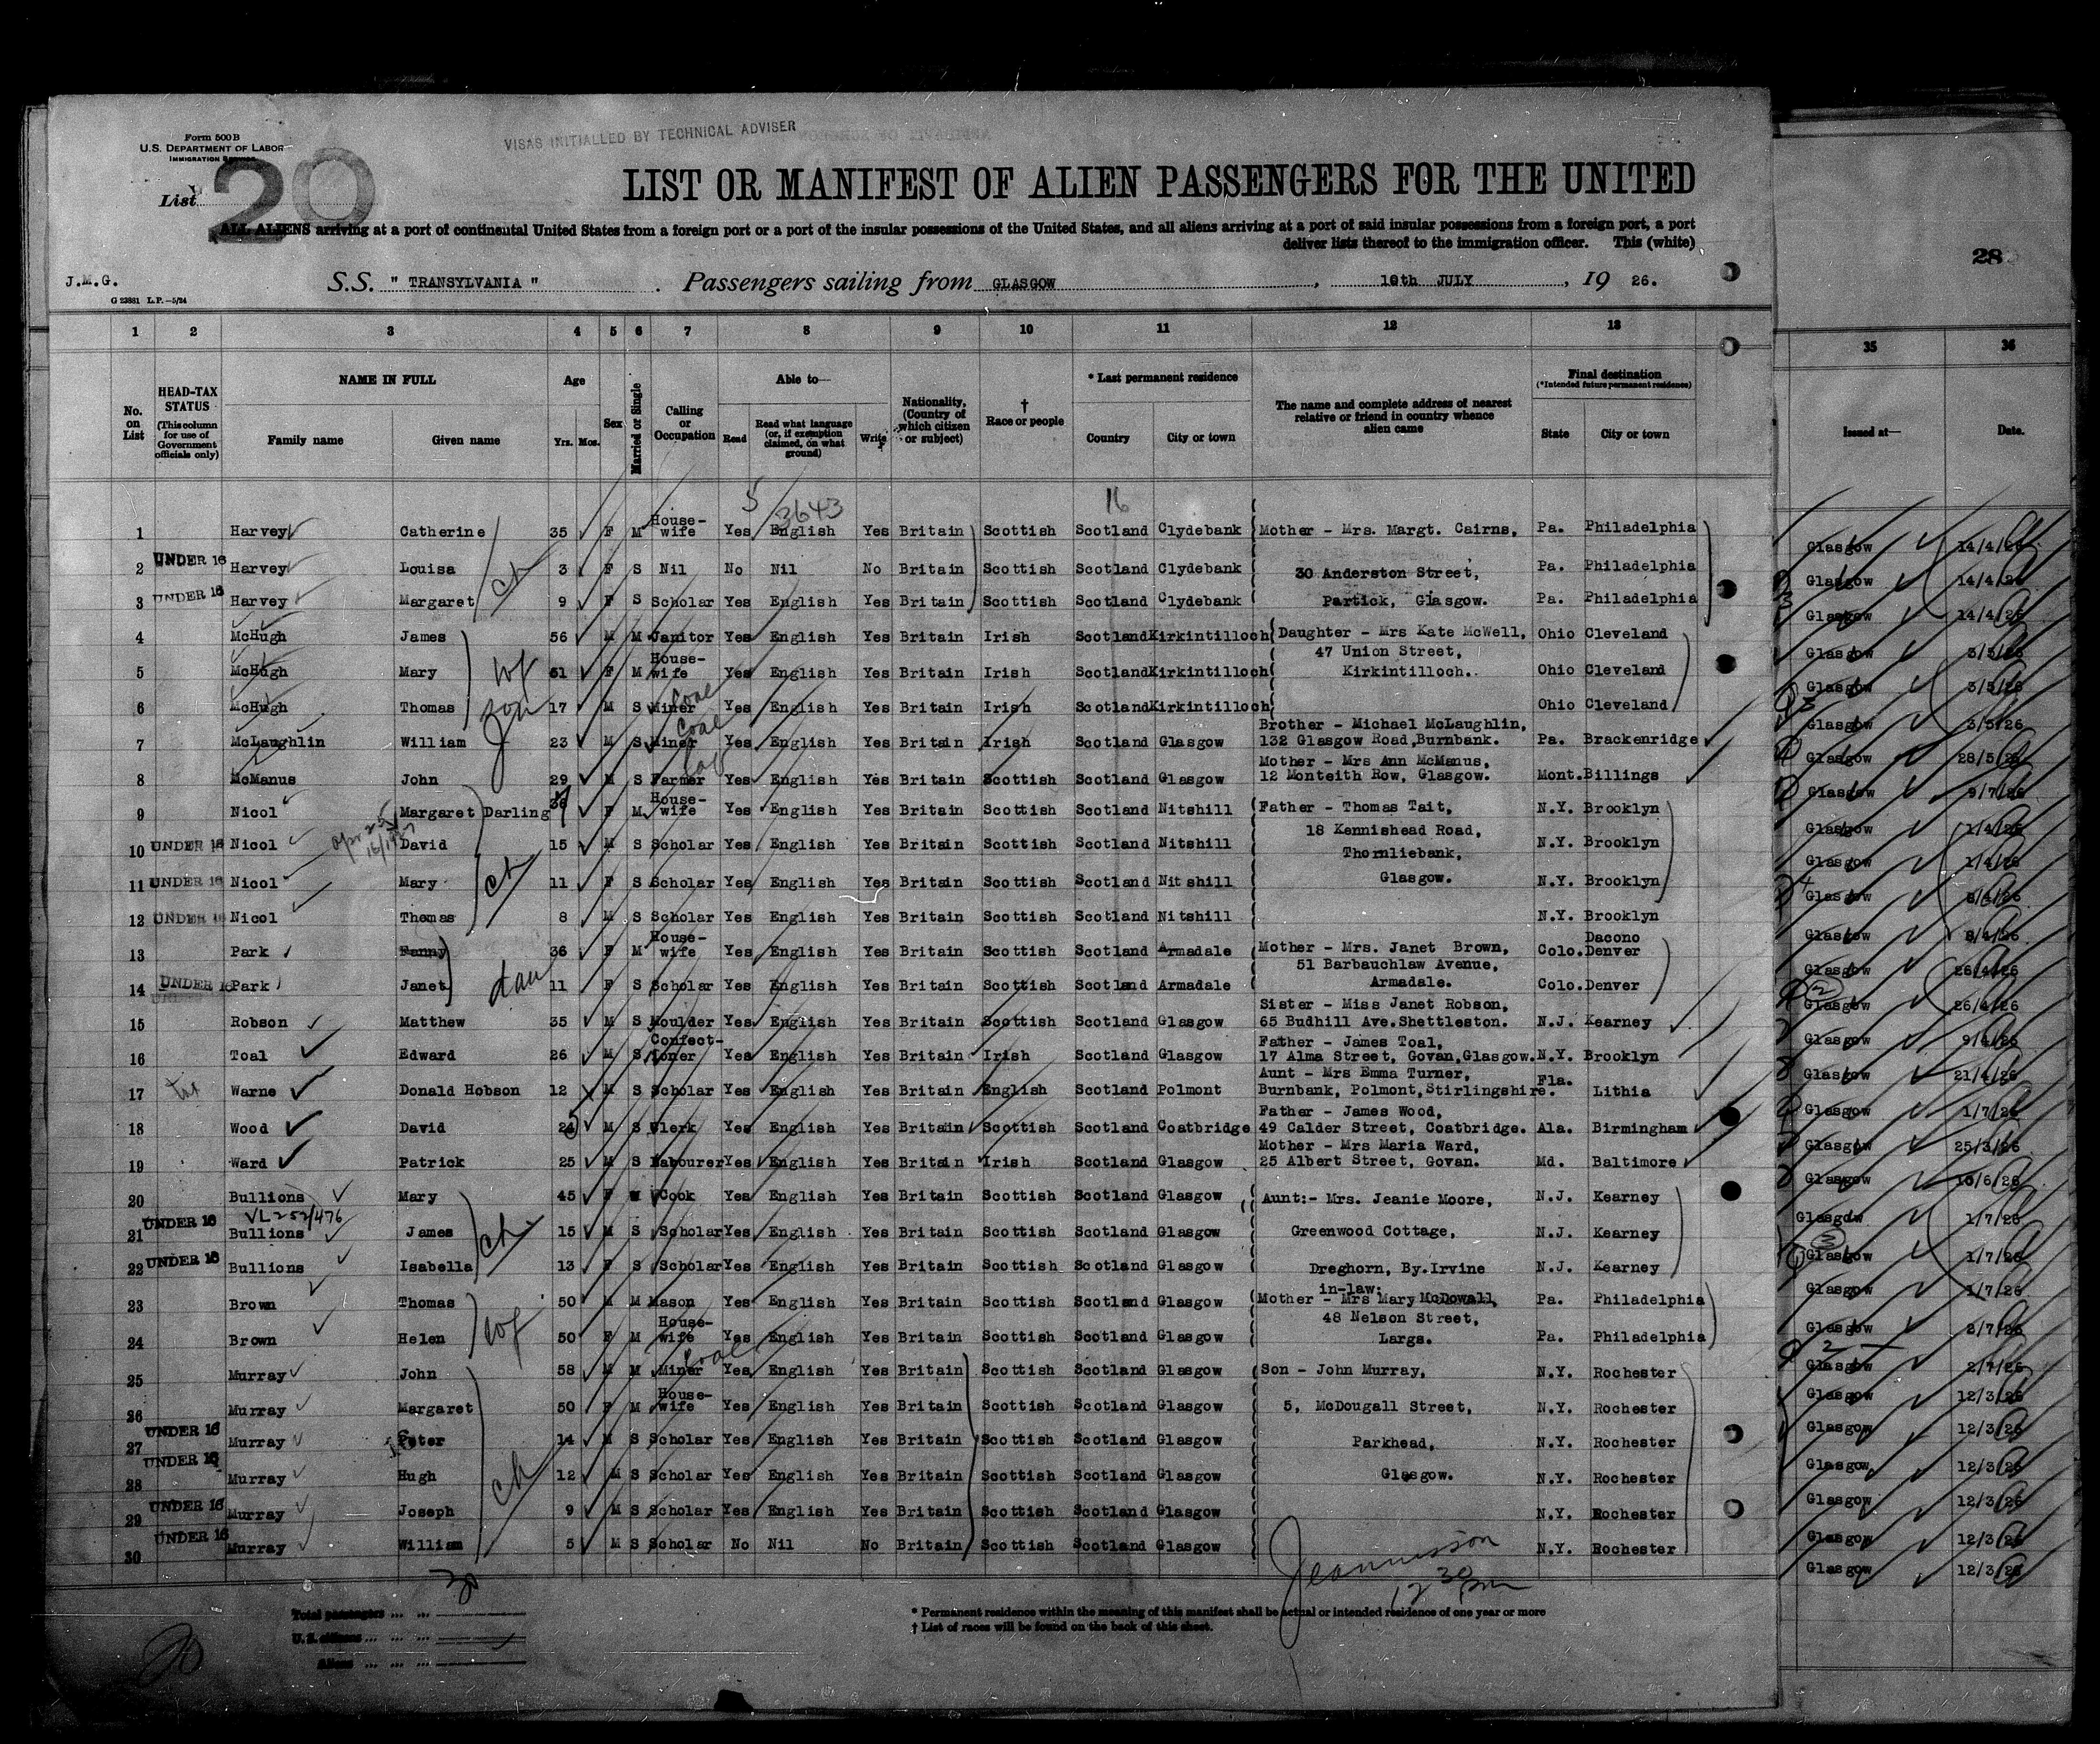 Form 500B
U.S. DEPARTMENT OF LABOR
IMMIGRATION SERVICE
VISAS INITIALLED BY TECHNICAL ADVISER
List 20
LIST OR MANIFEST OF ALIEN PASSENGERS FOR THE UNITED
ALL ALIENS arriving at a port of continental United States from a foreign port or a port of the insular possessions of the United States, and all aliens arriving at a port of said insular possessions from a foreign port, a port
deliver lists thereof to the immigration officer. This (white)
28
J.M.G.
G 23881 L.P.—5/24
S.S. " TRANSYLVANIA " . Passengers sailing from GLASGOW , 10th JULY , 19 26.
1 2 3 4 5 6 7 8 9 10 11 12 13 35 36
No. on List
HEAD-TAX STATUS (This column for use of Government officials only)
NAME IN FULL Family name Given name
Age Yrs. Mos.
Sex
Married or Single
Calling or Occupation
Able to— Read Read what language (or, if exemption claimed, on what ground) Write
Nationality, (Country of which citizen or subject)
† Race or people
* Last permanent residence Country City or town
The name and complete address of nearest relative or friend in country whence alien came
Final destination (*Intended future permanent residence) State City or town
Issued at— Date.
5 3643 16
1 Harvey Catherine 35 F M House-wife Yes English Yes Britain Scottish Scotland Clydebank Mother - Mrs. Margt. Cairns, Pa. Philadelphia Glasgow 14/4/26
2 UNDER 16 Harvey Louisa ch 3 F S Nil No Nil No Britain Scottish Scotland Clydebank 30 Anderston Street, Pa. Philadelphia Glasgow 14/4/26
3 UNDER 16 Harvey Margaret 9 F S Scholar Yes English Yes Britain Scottish Scotland Clydebank Partick, Glasgow. Pa. Philadelphia Glasgow 14/4/26
4 McHugh James 56 M M Janitor Yes English Yes Britain Irish Scotland Kirkintilloch Daughter - Mrs Kate McWell, Ohio Cleveland Glasgow 3/5/26
5 McHugh Mary wf 51 F M House-wife Yes English Yes Britain Irish Scotland Kirkintilloch 47 Union Street, Kirkintilloch. Ohio Cleveland Glasgow 3/5/26
6 McHugh Thomas son 17 M S Miner coal Yes English Yes Britain Irish Scotland Kirkintilloch Ohio Cleveland Glasgow 3/5/26
7 McLaughlin William 23 M S Miner coal Yes English Yes Britain Irish Scotland Glasgow Brother - Michael McLaughlin, 132 Glasgow Road, Burnbank. Pa. Brackenridge Glasgow 28/5/26
8 McManus John 29 M S Farmer lab Yes English Yes Britain Scottish Scotland Glasgow Mother - Mrs Ann McManus, 12 Monteith Row, Glasgow. Mont. Billings Glasgow 9/7/26
9 Nicol Margaret Darling F M House-wife Yes English Yes Britain Scottish Scotland Nitshill Father - Thomas Tait, N.Y. Brooklyn Glasgow 1/4/26
10 UNDER 16 Nicol David 15 M S Scholar Yes English Yes Britain Scottish Scotland Nitshill 18 Kennishead Road, Thornliebank, N.Y. Brooklyn Glasgow 1/4/26
11 UNDER 16 Nicol Mary ch 11 F S Scholar Yes English Yes Britain Scottish Scotland Nitshill Glasgow. N.Y. Brooklyn Glasgow
12 UNDER 16 Nicol Thomas 8 M S Scholar Yes English Yes Britain Scottish Scotland Nitshill N.Y. Brooklyn Glasgow
13 Park Fanny 36 F M House-wife Yes English Yes Britain Scottish Scotland Armadale Mother - Mrs. Janet Brown, 51 Barbauchlaw Avenue, Colo. Dacono Denver Glasgow 26/4/26
14 UNDER 16 Park Janet dau 11 F S Scholar Yes English Yes Britain Scottish Scotland Armadale Armadale. Colo. Denver Glasgow 26/4/26
15 Robson Matthew 35 M S Moulder Yes English Yes Britain Scottish Scotland Glasgow Sister - Miss Janet Robson, 65 Budhill Ave. Shettleston. N.J. Kearney Glasgow
16 Toal Edward 26 M S Confect-ioner Yes English Yes Britain Irish Scotland Glasgow Father - James Toal, 17 Alma Street, Govan, Glasgow. N.Y. Brooklyn Glasgow 21/4/26
17 Warne Donald Hobson 12 M S Scholar Yes English Yes Britain English Scotland Polmont Aunt - Mrs Emma Turner, Burnbank, Polmont, Stirlingshire. Fla. Lithia Glasgow 1/7/26
18 Wood David M S Clerk Yes English Yes Britain Scottish Scotland Coatbridge Father - James Wood, 49 Calder Street, Coatbridge. Ala. Birmingham Glasgow 25/3/26
19 Ward Patrick 25 M S Labourer Yes English Yes Britain Irish Scotland Glasgow Mother - Mrs Maria Ward, 25 Albert Street, Govan. Md. Baltimore Glasgow 10/6/26
20 Bullions Mary 45 F Cook Yes English Yes Britain Scottish Scotland Glasgow Aunt:- Mrs. Jeanie Moore, N.J. Kearney Glasgow 1/7/26
VL 252/476
21 UNDER 16 Bullions James ch 15 M S Scholar Yes English Yes Britain Scottish Scotland Glasgow Greenwood Cottage, N.J. Kearney Glasgow 1/7/26
22 UNDER 16 Bullions Isabella 13 F S Scholar Yes English Yes Britain Scottish Scotland Glasgow Dreghorn, By. Irvine N.J. Kearney Glasgow 1/7/26
23 Brown Thomas 50 M M Mason Yes English Yes Britain Scottish Scotland Glasgow Mother in-law: - Mrs Mary McDowall, Pa. Philadelphia Glasgow 2/7/26
24 Brown Helen wf 50 F M House-wife Yes English Yes Britain Scottish Scotland Glasgow 48 Nelson Street, Largs. Pa. Philadelphia Glasgow 2/7/26
25 Murray John 58 M M Miner coal Yes English Yes Britain Scottish Scotland Glasgow Son - John Murray, N.Y. Rochester Glasgow 12/3/26
26 Murray Margaret 50 F M House-wife Yes English Yes Britain Scottish Scotland Glasgow 5, McDougall Street, N.Y. Rochester Glasgow 12/3/26
27 UNDER 16 Murray Peter 14 M S Scholar Yes English Yes Britain Scottish Scotland Glasgow Parkhead, N.Y. Rochester Glasgow 12/3/26
28 UNDER 16 Murray Hugh ch 12 M S Scholar Yes English Yes Britain Scottish Scotland Glasgow Glasgow. N.Y. Rochester Glasgow 12/3/26
29 UNDER 16 Murray Joseph 9 M S Scholar Yes English Yes Britain Scottish Scotland Glasgow N.Y. Rochester Glasgow 12/3/26
30 UNDER 16 Murray William 5 M S Scholar No Nil No Britain Scottish Scotland Glasgow N.Y. Rochester Glasgow 12/3/26
30
12 30 pm
Total passengers ... ...
U.S. citizens ... ...
Aliens ... ... ...
20
* Permanent residence within the meaning of this manifest shall be actual or intended residence of one year or more
† List of races will be found on the back of this sheet.